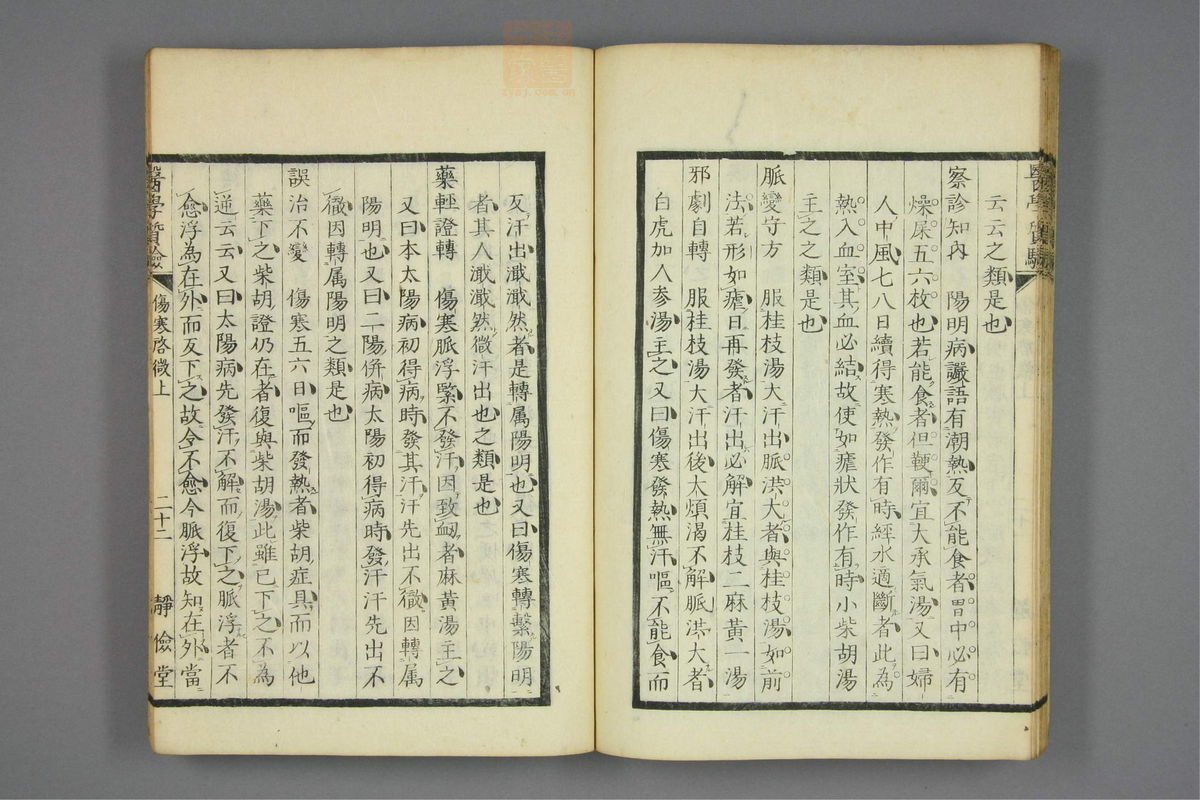 云云之類是也
察診知内　陽明病讝語有潮熱反不能食者胃中必有
燥屎五六枚也若能食者但鞕爾宜大承氣湯又曰婦
人中風七八日續得寒熱發作有時經水適斷者此為
熱入血室其血必結故使如瘧狀發作有時小柴胡湯
主之之類是也
脈變守方　服桂枝湯大汗出脈洪大者與桂枝湯如前
法若形如瘧日再發者汗出必解宜桂枝二麻黃一湯
邪劇自轉　服桂枝湯大汗出後大煩渴不解脈洪大者
白虎加人參湯主之又曰傷寒發熱無汗嘔不能食而
反汗出濈濈然者是轉属陽明也又曰傷寒轉繫陽明
者其人濈濈然微汗出也之類是也
藥輕證轉　傷寒脈浮緊不發汗因致衂者麻黃湯主之
又曰本太陽病初得病時發其汗汗先出不徹因轉属
陽明也又曰二陽併病太陽初得病時發汗汗先出不
徹因轉属陽明之類是也
誤治不變　傷寒五六日嘔而發熱者柴胡症具而以他
藥下之柴胡證仍在者復與柴胡湯此雖已下之不為
逆云云又曰太陽病先發汗不解而復下之脈浮者不
愈浮為在外而反下之故令不愈今脈浮故知在外當
醫學質驗　傷寒啓微上　二十二　靜儉堂
zysj.com.cn